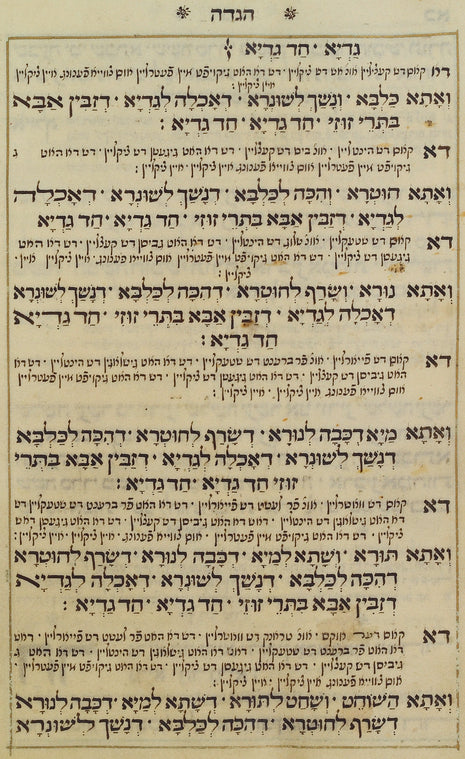 הגדה
גַּדְיָא · חַד גַּדְיָא
וְאָתָא כַּלְבָּא · וְנָשַׁךְ לְשׁוּנְרָא · דְאָכְלָה לְגַדְיָא · דְזַבִּין אַבָּא
בִּתְרֵי זוּזֵי · חַד גַּדְיָא · חַד גַּדְיָא :
דא קאם דש הינטליין · אונ ביס דש קעצליין · דש דא האט גיגעסן דש ציקליין · דש דא האט ג
גיקויפט איין פעטרליין אום צווייא פפענונג איין ציקליין :
וְאָתָא חוּטְרָא · וְהִכָּה לְכַלְבָּא · דְנָשַׁךְ לְשׁוּנְרָא · דְאָכְלָה
לְגַדְיָא · דְזַבִּין אַבָּא בִּתְרֵי זוּזֵי · חַד גַּדְיָא · חַד גַּדְיָא
דא קאם דש שטעקליין · אונ שלוג דש הינטליין · דש דא האט גיביסן דש קעצליין · דש דא האט
גיגעסן דש ציקליין · דש דא האט גיקויפט איין פעטרליין אום צווייא פפענונג · איין ציקליין · איין
ציקליין :
וְאָתָא נוּרָא · וְשָׂרַף לְחוּטְרָא · דְהִכָּה לְכַלְבָּא · דְנָשַׁךְ לְשׁוּנְרָא
דְאָכְלָה לְגַדְיָא · דְזַבִּין אַבָּא בִּתְרֵי זוּזֵי · חַד גַּדְיָא
חַד גַּדְיָא :
דא קאם דש פייארליין · אונ פר ברענט דש שטעקליין · דש דא האט גישלאגן דש הינטליין · דש דא
האט גיביסן דש קעצליין · דש דא האט גיגעסן דש ציקליין · דש דא האט גיקויפט איין פעטרליין
אום צווייא פפענונג איין ציקליין :
וְאָתָא מַיָּא דְכָבָה לְנוּרָא · דְשָׂרַף לְחוּטְרָא · דְהִכָּה לְכַלְבָּא
דְנָשַׁךְ לְשׁוּנְרָא · דְאָכְלָה לְגַדְיָא · דְזַבִּין אַבָּא בִּתְרֵי
זוּזֵי חַד גַּדְיָא · חַד גַּדְיָא :
דא קאם דש וואשרליין · אונ פר לעשט דש פייארליין · דש דא האט פר ברענט דש שטעקליין · דש
דא האט גישלאגן דש הינטליין · דש דא האט גיביסן דש קעצליין · דש דא האט גיגעסן דש
ציקליין · דש דא האט גיקויפט איין פעטרליין אום צווייא פפענונג · איין ציקליין · איין ציקליין :
וְאָתָא תּוֹרָא · וְשָׁתָא לְמַיָּא · דְכָבָה לְנוּרָא · דְשָׂרַף לְחוּטְרָא
דְהִכָּה לְכַלְבָּא · דְנָשַׁךְ לְשׁוּנְרָא · דְאָכְלָה לְגַדְיָא
דְזַבִּין אַבָּא בִּתְרֵי זוּזֵי · חַד גַּדְיָא · חַד גַּדְיָא :
דא קאם דער אוקס · אונ טראנק דש וואשרליין · דש דא האט פר לעשט דש פייארליין · דש
דא האט פר ברענט דש שטעקליין · דש דא האט גישלאגן דש הינטליין · דש דא האט
גיביסן דש קעצליין · דש דא האט גיגעסן דש ציקליין · דש דא האט גיקויפט איין פעטרליין
אום צווייא פפענונג · איין ציקליין · איין ציקליין :
וְאָתָא הַשּׁוֹחֵט · וְשָׁחַט לְתוֹרָא · דְשָׁתָא לְמַיָּא · דְכָבָה לְנוּרָא
דְשָׂרַף לְחוּטְרָא · דְהִכָּה לְכַלְבָּא · דְנָשַׁךְ לְשׁוּנְרָא